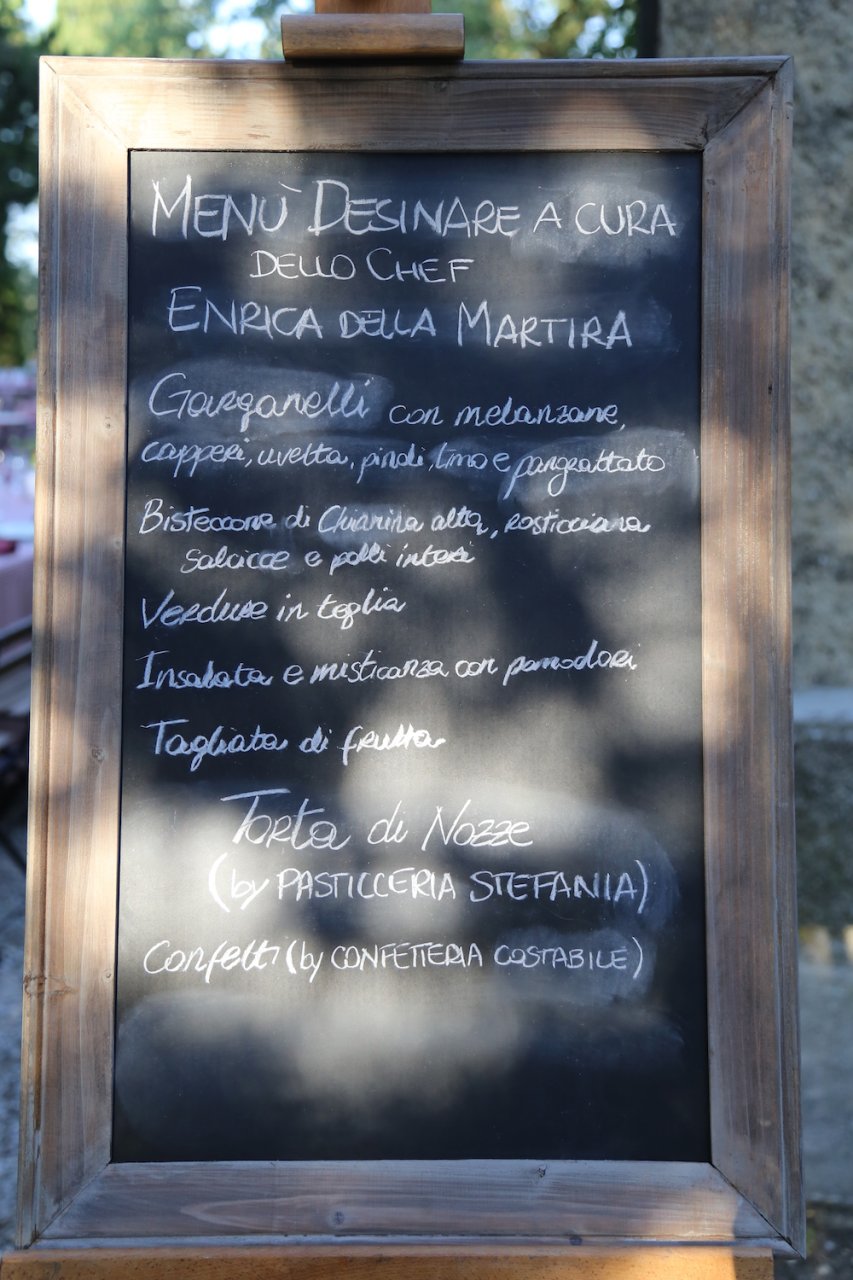 MENÙ DESINARE A CURA
DELLO CHEF
ENRICA DELLA MARTIRA
Garganelli con melanzane,
capperi, uvetta, pinoli, timo e pangrattato
Bisteccone di Chianina alta, rosticciana
Salcicce e polli interi
Verdure in teglia
Insalata e misticanza con pomodori
Tagliata di frutta
Torta di Nozze
(by PASTICCERIA STEFANIA)
Confetti (by CONFETTERIA COSTABILE)